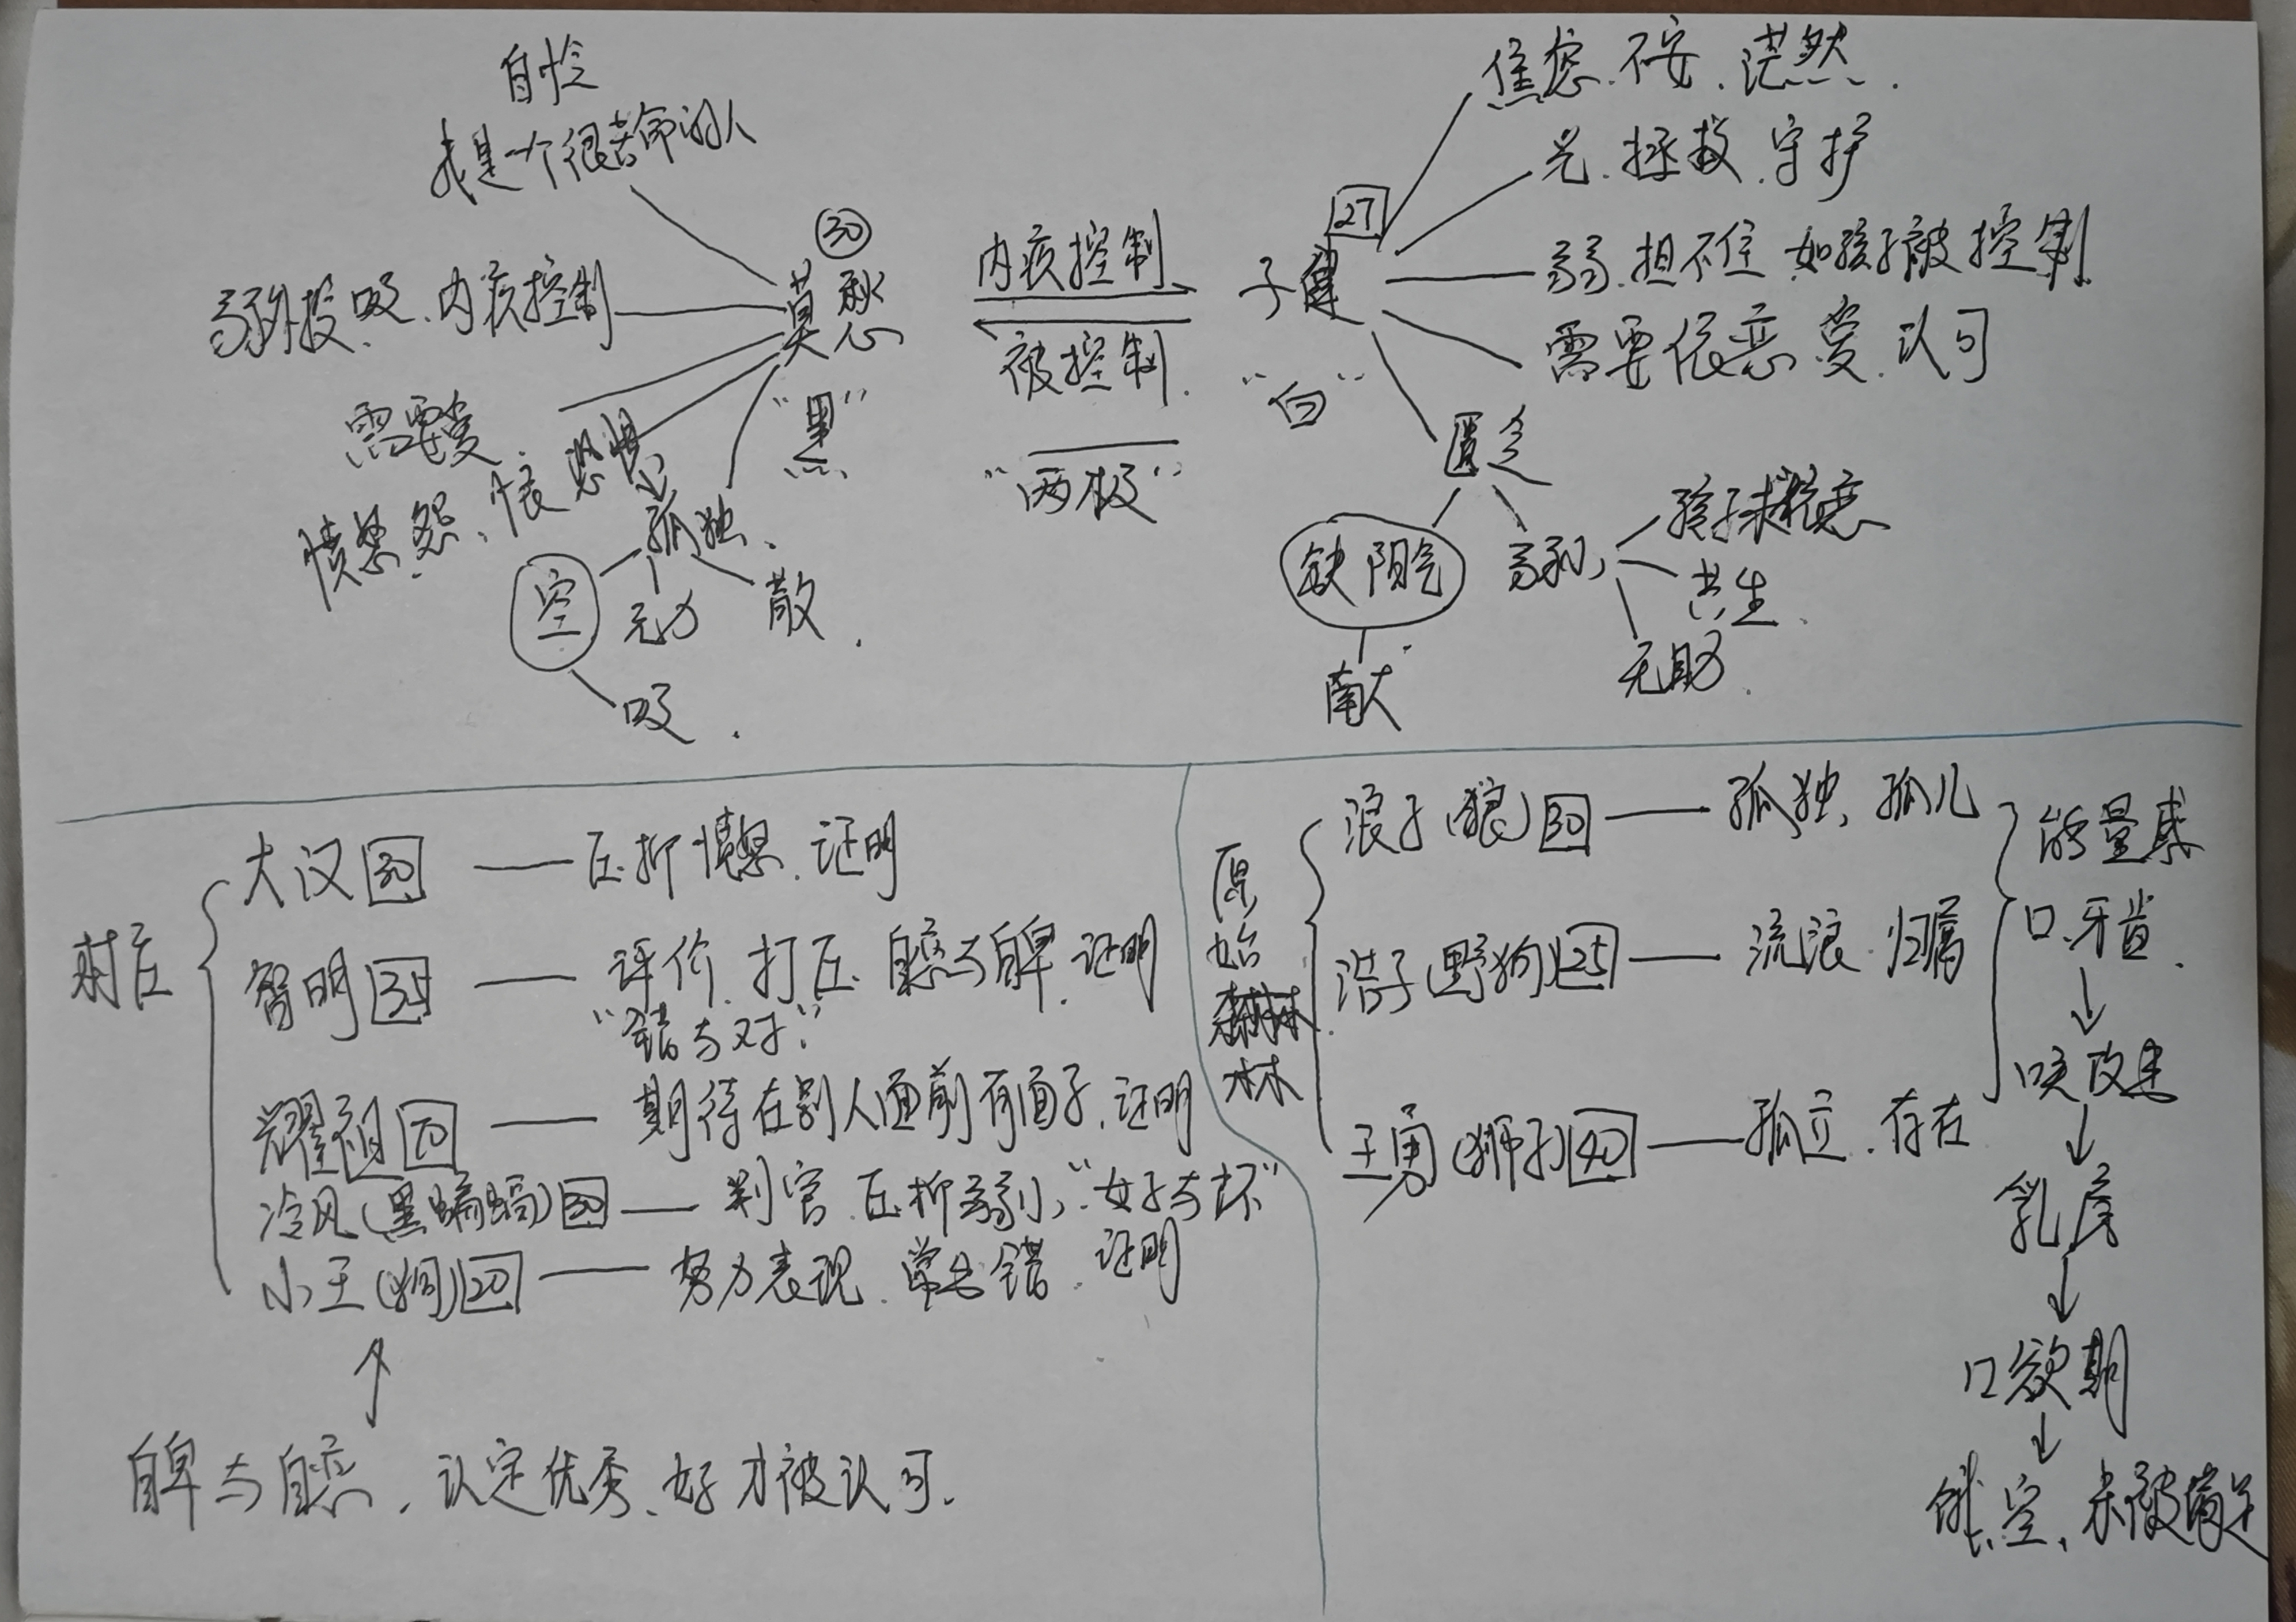 自怜
我是一个很苦命的人
30
莫愁
"黑"
弱外投.吸.内疚控制
需要爱.
愤怒.怨、恨 恐惧
孤独、
空
无力
散.
吸.
内疚控制
被控制.
"两极"
27
子健
"白"
焦虑.不安.茫然.
兄.拯救.守护
弱.担不住 如孩子被控制
需要依恋 爱.认可
匮乏
缺阳气
献
弱小
孩子求依恋
共生.
无助.
大汉 30 — 压抑愤怒.证明
智明 35 — 评价.打压.自恋与自卑.证明
"错与对"
耀祖 70 — 期待在别人面前有面子.证明
冷风(黑蝙蝠) 30 — 判官.压抑弱小,"好与坏"
小王(狗) 20 — 努力表现.常出错.证明
自卑与自恋.认定优秀、好才被认可.
原始森林
浪子(狼) 30 — 孤独,孤儿
浩子(野狗) 25 — 流浪.归属
王勇(狮子) 40 — 孤立.存在
能量感
口.牙齿.
咬 攻击
乳房
口欲期
饿、空、未被满足